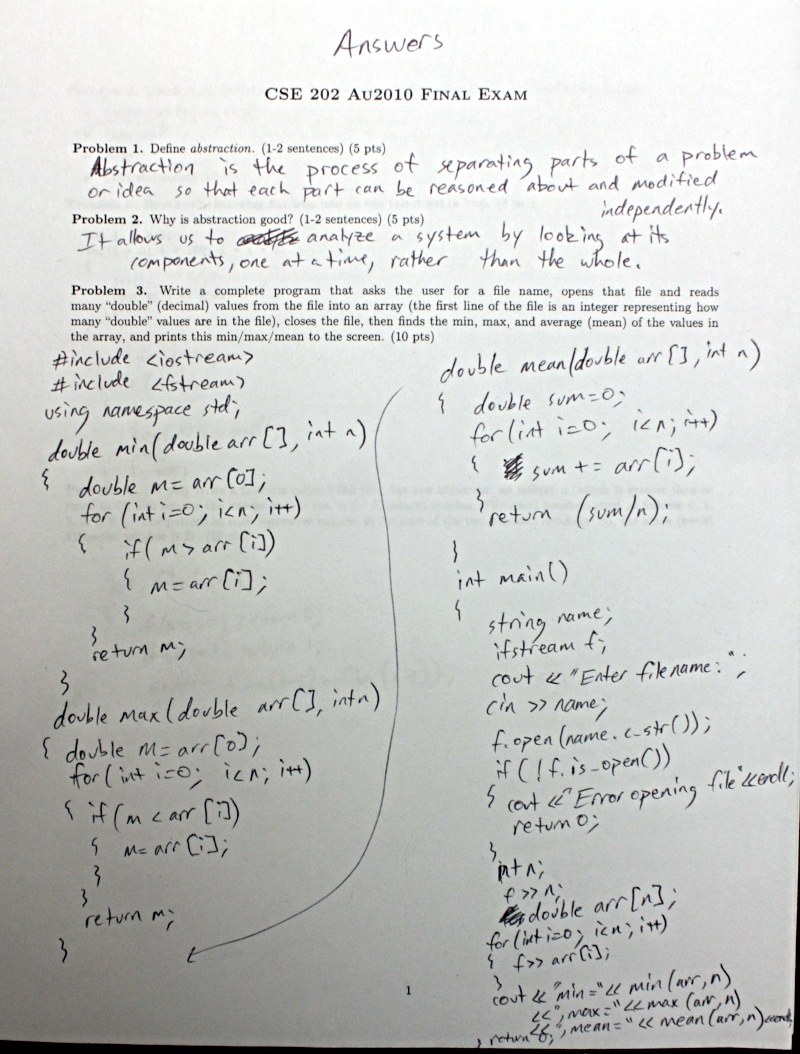 Answers
CSE 202 AU2010 FINAL EXAM
Problem 1. Define abstraction. (1-2 sentences) (5 pts)
Abstraction is the process of separating parts of a problem
or idea so that each part can be reasoned about and modified
independently.
Problem 2. Why is abstraction good? (1-2 sentences) (5 pts)
It allows us to analyze a system by looking at its
components, one at a time, rather than the whole.
Problem 3. Write a complete program that asks the user for a file name, opens that file and reads
many "double" (decimal) values from the file into an array (the first line of the file is an integer representing how
many "double" values are in the file), closes the file, then finds the min, max, and average (mean) of the values in
the array, and prints this min/max/mean to the screen. (10 pts)
#include <iostream>
#include <fstream>
using namespace std;
double min(double arr[], int n)
{ double m = arr[0];
for (int i=0; i<n; i++)
{ if( m > arr[i])
{ m = arr[i];
}
}
return m;
}
double max(double arr[], int n)
{ double m = arr[0];
for(int i=0; i<n; i++)
{ if(m < arr[i])
{ m= arr[i];
}
}
return m;
}
double mean(double arr[], int n)
{ double sum=0;
for(int i=0; i<n; i++)
{ sum += arr[i];
}
return (sum/n);
}
int main()
{ string name;
ifstream f;
cout << "Enter filename: ";
cin >> name;
f.open(name.c_str());
if (!f.is_open())
{ cout << "Error opening file"<<endl;
return 0;
}
int n;
f >> n;
double arr[n];
for(int i=0; i<n; i++)
{ f>> arr[i];
}
cout << "min="<< min(arr,n)
<<", max="<<max(arr,n)
<<", mean="<< mean(arr,n)<<endl;
} return 0;
1